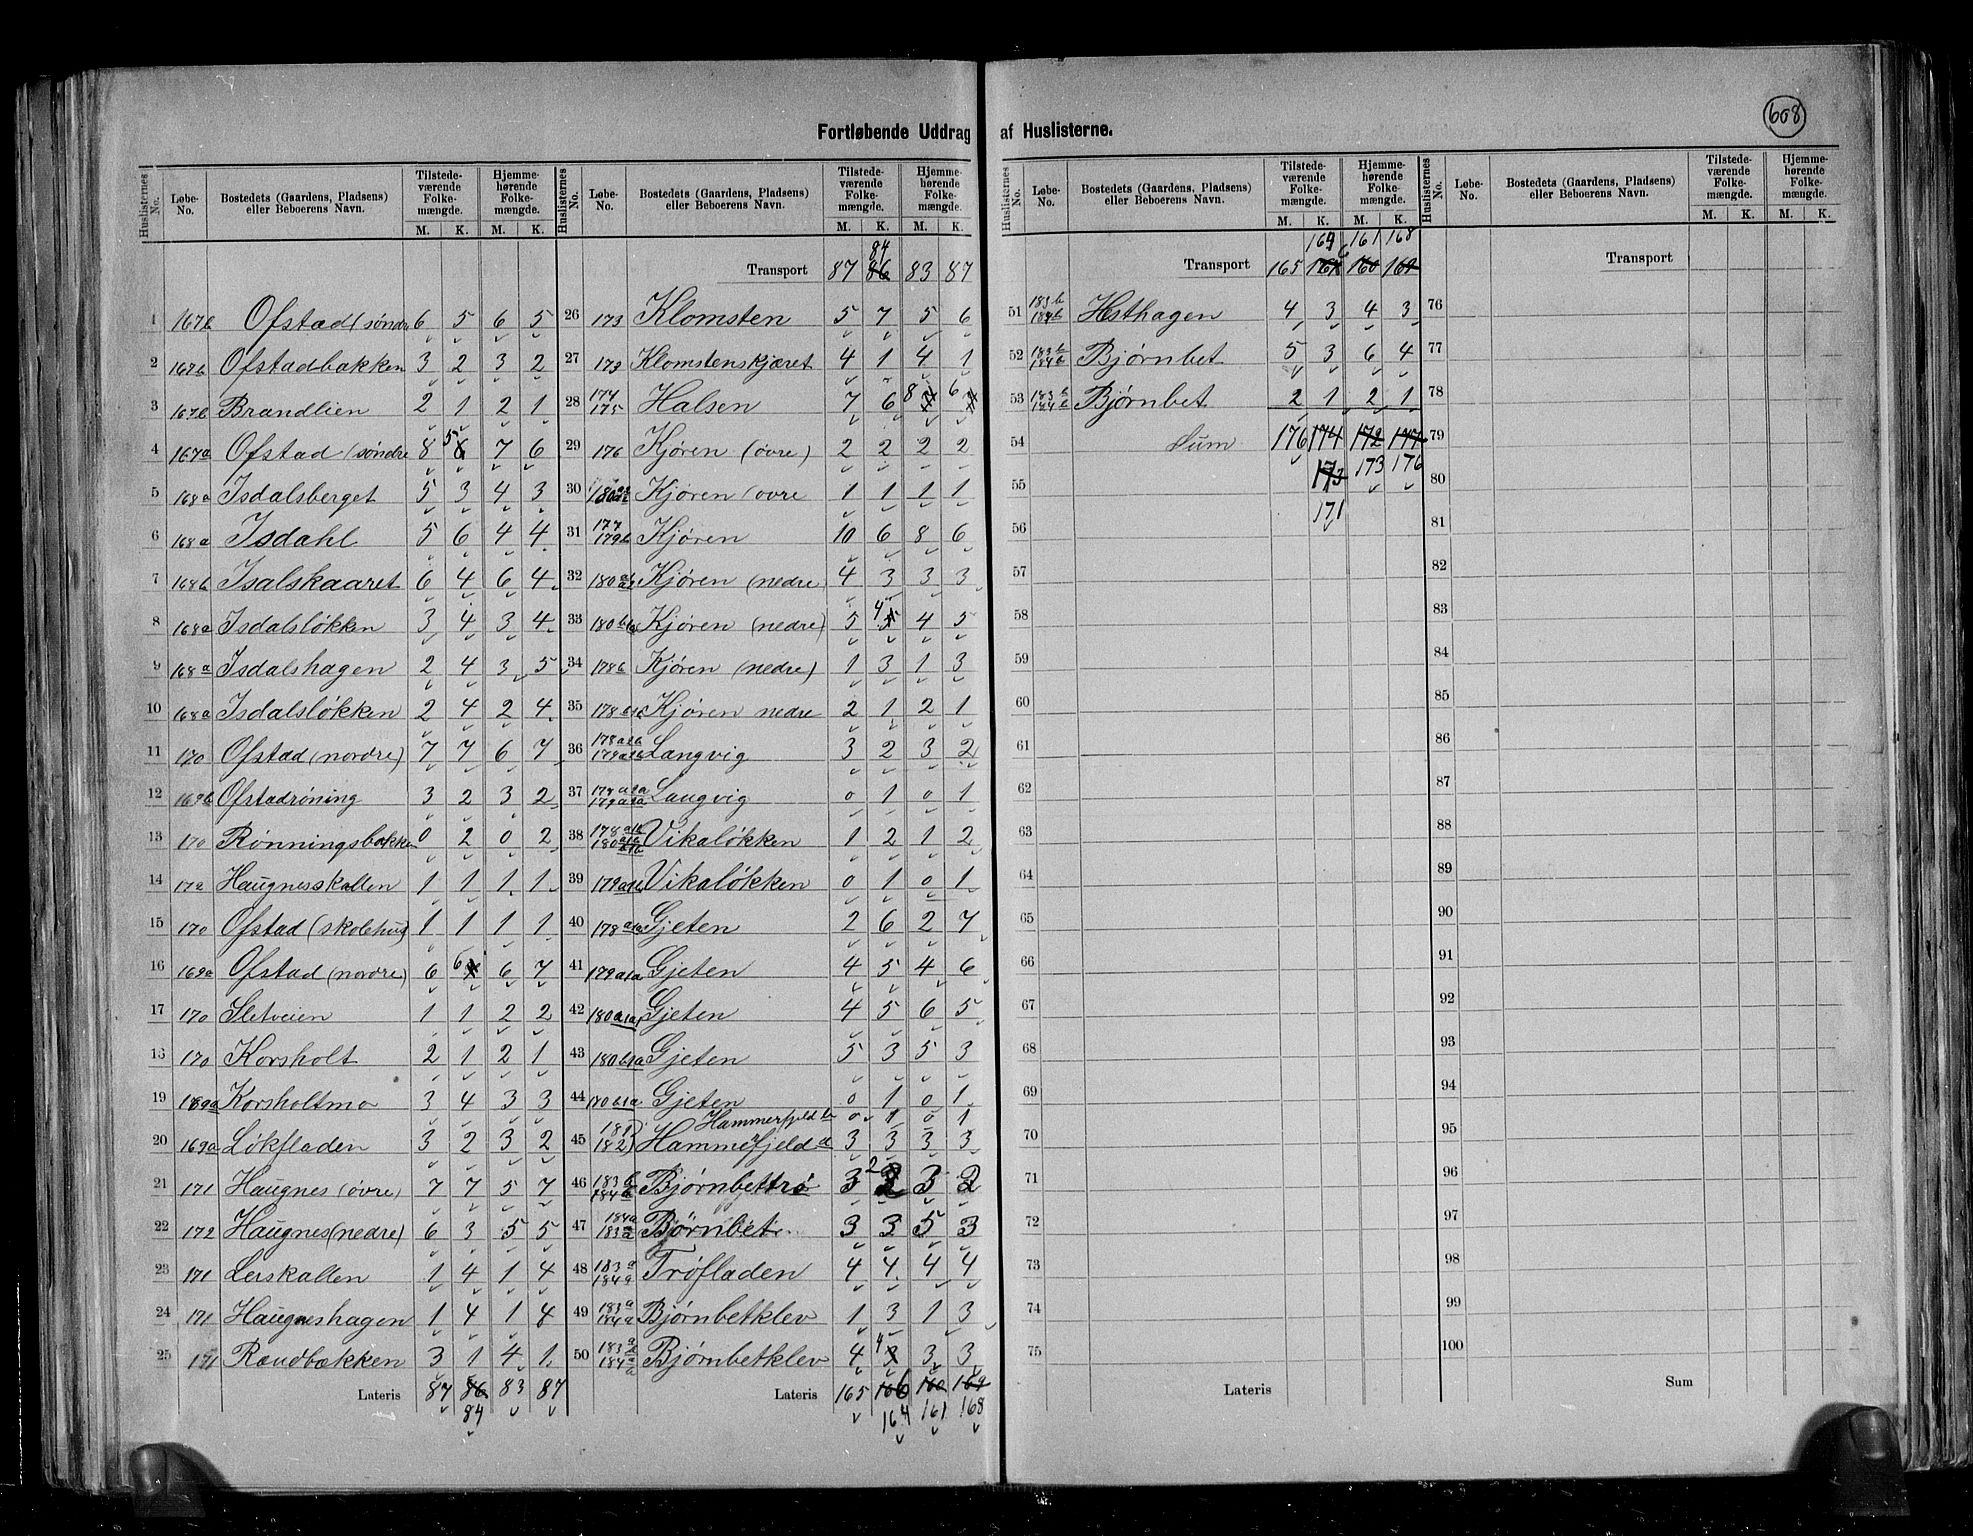 608
Fortløbende Uddrag af Huslisterne.
Huslisternes No. | Løbe-No. | Bostedets (Gaardens, Pladsens) eller Beboerens Navn. | Tilstedeværende Folkemængde. M. K. | Hjemmehørende Folkemængde. M. K.
1 167b Ofstad (søndre 6 5 6 5
2 167b Ofstadbakken 3 2 3 2
3 167b Brandlien 2 1 2 1
4 167a Ofstad (søndre 8 5 7 6
5 168a Isdalsberget 5 3 4 3
6 168a Isdahl 5 6 4 4
7 168b Isalskaaret 6 4 6 4
8 168a Isdalsløkken 3 4 3 4
9 168a Isdalshagen 2 4 3 5
10 168a Isdalsløkken 2 4 2 4
11 170 Ofstad (nordre) 7 7 6 7
12 169b Ofstadrøning 3 2 3 2
13 170 Rønningsbakken 0 2 0 2
14 172 Haugnesskallen 1 1 1 1
15 170 Ofstad (skolehus) 1 1 1 1
16 169a Ofstad (nordre) 6 6 6 7
17 170 Sletveien 1 1 2 2
18 170 Korsholt 2 1 2 1
19 169a Korsholtmo 3 4 3 3
20 169a Løkfladen 3 2 3 2
21 171 Haugnes (øvre) 7 7 5 7
22 172 Haugnes (nedre) 6 3 5 5
23 171 Lerskallen 1 4 1 4
24 171 Haugneshagen 1 4 1 4
25 171 Raudbakken 3 1 4 1
Lateris 87 86 83 87
84
Huslisternes No. | Løbe-No. | Bostedets (Gaardens, Pladsens) eller Beboerens Navn. | Tilstedeværende Folkemængde. M. K. | Hjemmehørende Folkemængde. M. K.
84
Transport 87 86 83 87
26 173 Klomsten 5 7 5 6
27 173 Klomstenskjæret 4 1 4 1
28 174 175 Halsen 7 6 8 6
29 176 Kjøren (øvre) 2 2 2 2
30 Kjøren (øvre 1 1 1 1
31 177 179b Kjøren 10 6 8 6
32 Kjøren (nedre) 4 3 3 3
33 Kjøren (nedre) 5 4 4 5
34 178b Kjøren (nedre) 1 3 1 3
35 Kjøren nedre 2 1 2 1
36 Langvig 3 2 3 2
37 Langvig 0 1 0 1
38 Vikaløkken 1 2 1 2
39 Vikaløkken 0 1 0 1
40 Gjeten 2 6 2 7
41 179a1a Gjeten 4 5 4 6
42 180a1a Gjeten 4 5 6 5
43 180b1a Gjeten 5 3 5 3
44 Gjeten 0 1 0 1
Hammerfjeld b 0 1 0 1
45 181 182 Hammerfjeld a 3 3 3 3
46 183b 184b Bjørnbettrø 3 2 3 2
47 184a 183a Bjørnbet 3 3 5 3
48 183a 184a Trøfladen 4 4 4 4
49 183a 184a Bjørnbetklev 1 3 1 3
50 183a 184a Bjørnbetklev 4 4 3 3
Lateris 165 166 160 169
164 161 168
Huslisternes No. | Løbe-No. | Bostedets (Gaardens, Pladsens) eller Beboerens Navn. | Tilstedeværende Folkemængde. M. K. | Hjemmehørende Folkemængde. M. K.
164 161 168
Transport 165 160 169
51 183b 184b Hsthagen 4 3 4 3
52 183b 184b Bjørnbet 5 3 6 4
53 183b 184b Bjørnbet 2 1 2 1
54 Sum 176 174 172 177
173 173 176
55
171
56
57
58
59
60
61
62
63
64
65
66
67
68
69
70
71
72
73
74
75
Lateris
Huslisternes No. | Løbe-No. | Bostedets (Gaardens, Pladsens) eller Beboerens Navn. | Tilstedeværende Folkemængde. M. K. | Hjemmehørende Folkemængde. M. K.
Transport
76
77
78
79
80
81
82
83
84
85
86
87
88
89
90
91
92
93
94
95
96
97
98
99
100
Sum